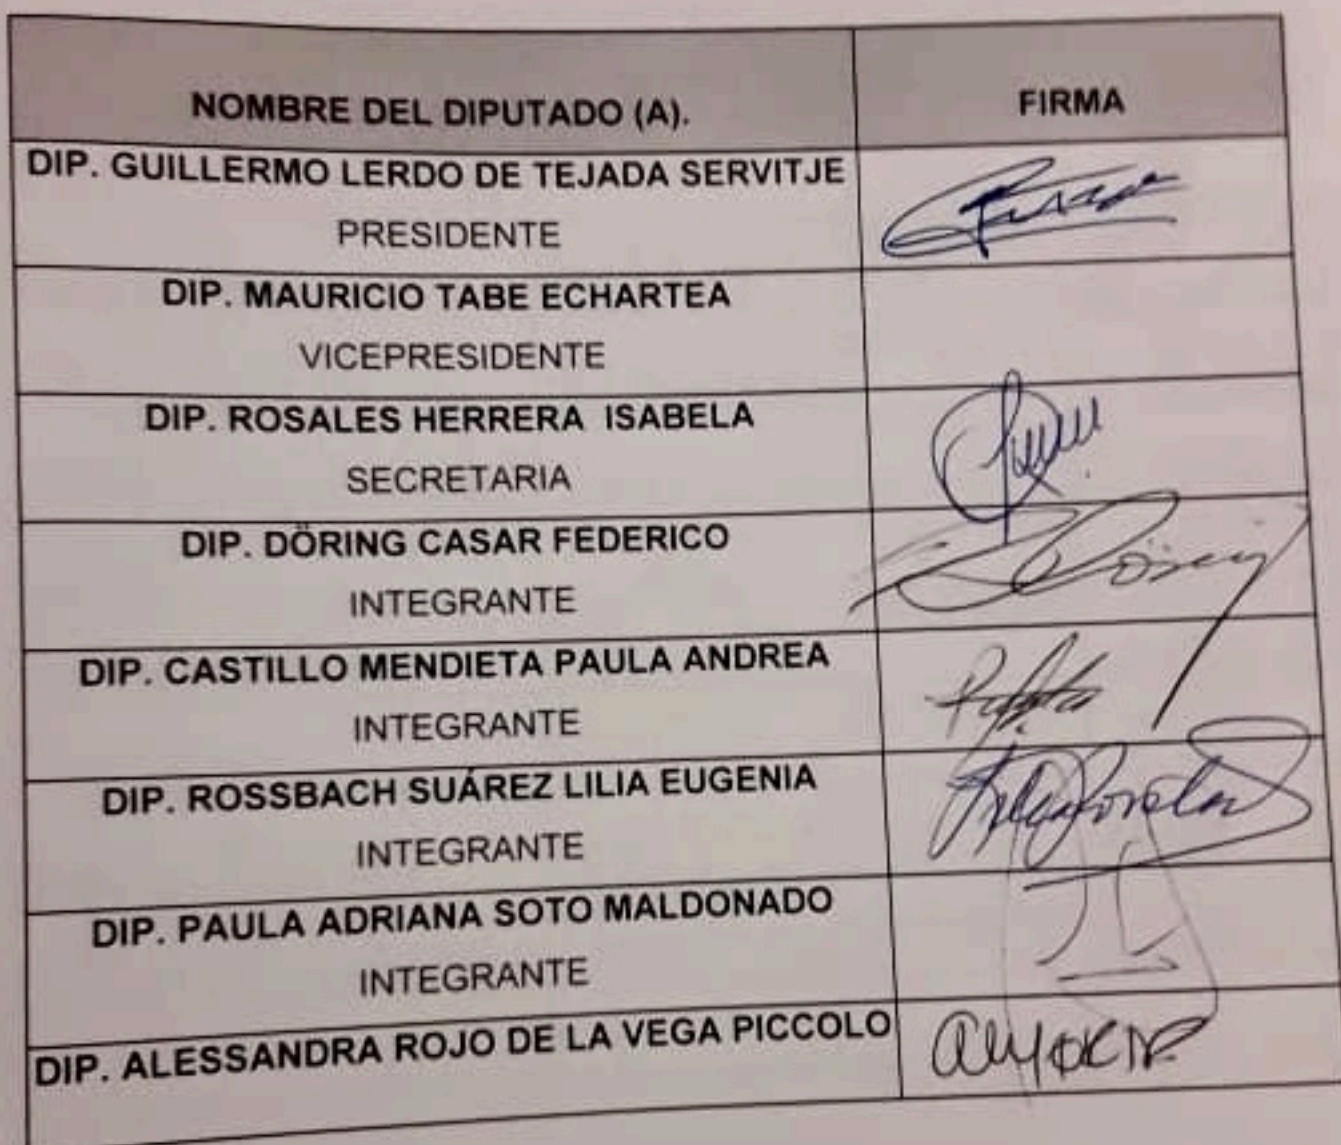 NOMBRE DEL DIPUTADO (A). FIRMA
DIP. GUILLERMO LERDO DE TEJADA SERVITJE
PRESIDENTE
DIP. MAURICIO TABE ECHARTEA
VICEPRESIDENTE
DIP. ROSALES HERRERA ISABELA
SECRETARIA
DIP. DÖRING CASAR FEDERICO
INTEGRANTE
DIP. CASTILLO MENDIETA PAULA ANDREA
INTEGRANTE
DIP. ROSSBACH SUÁREZ LILIA EUGENIA
INTEGRANTE
DIP. PAULA ADRIANA SOTO MALDONADO
INTEGRANTE
DIP. ALESSANDRA ROJO DE LA VEGA PICCOLO